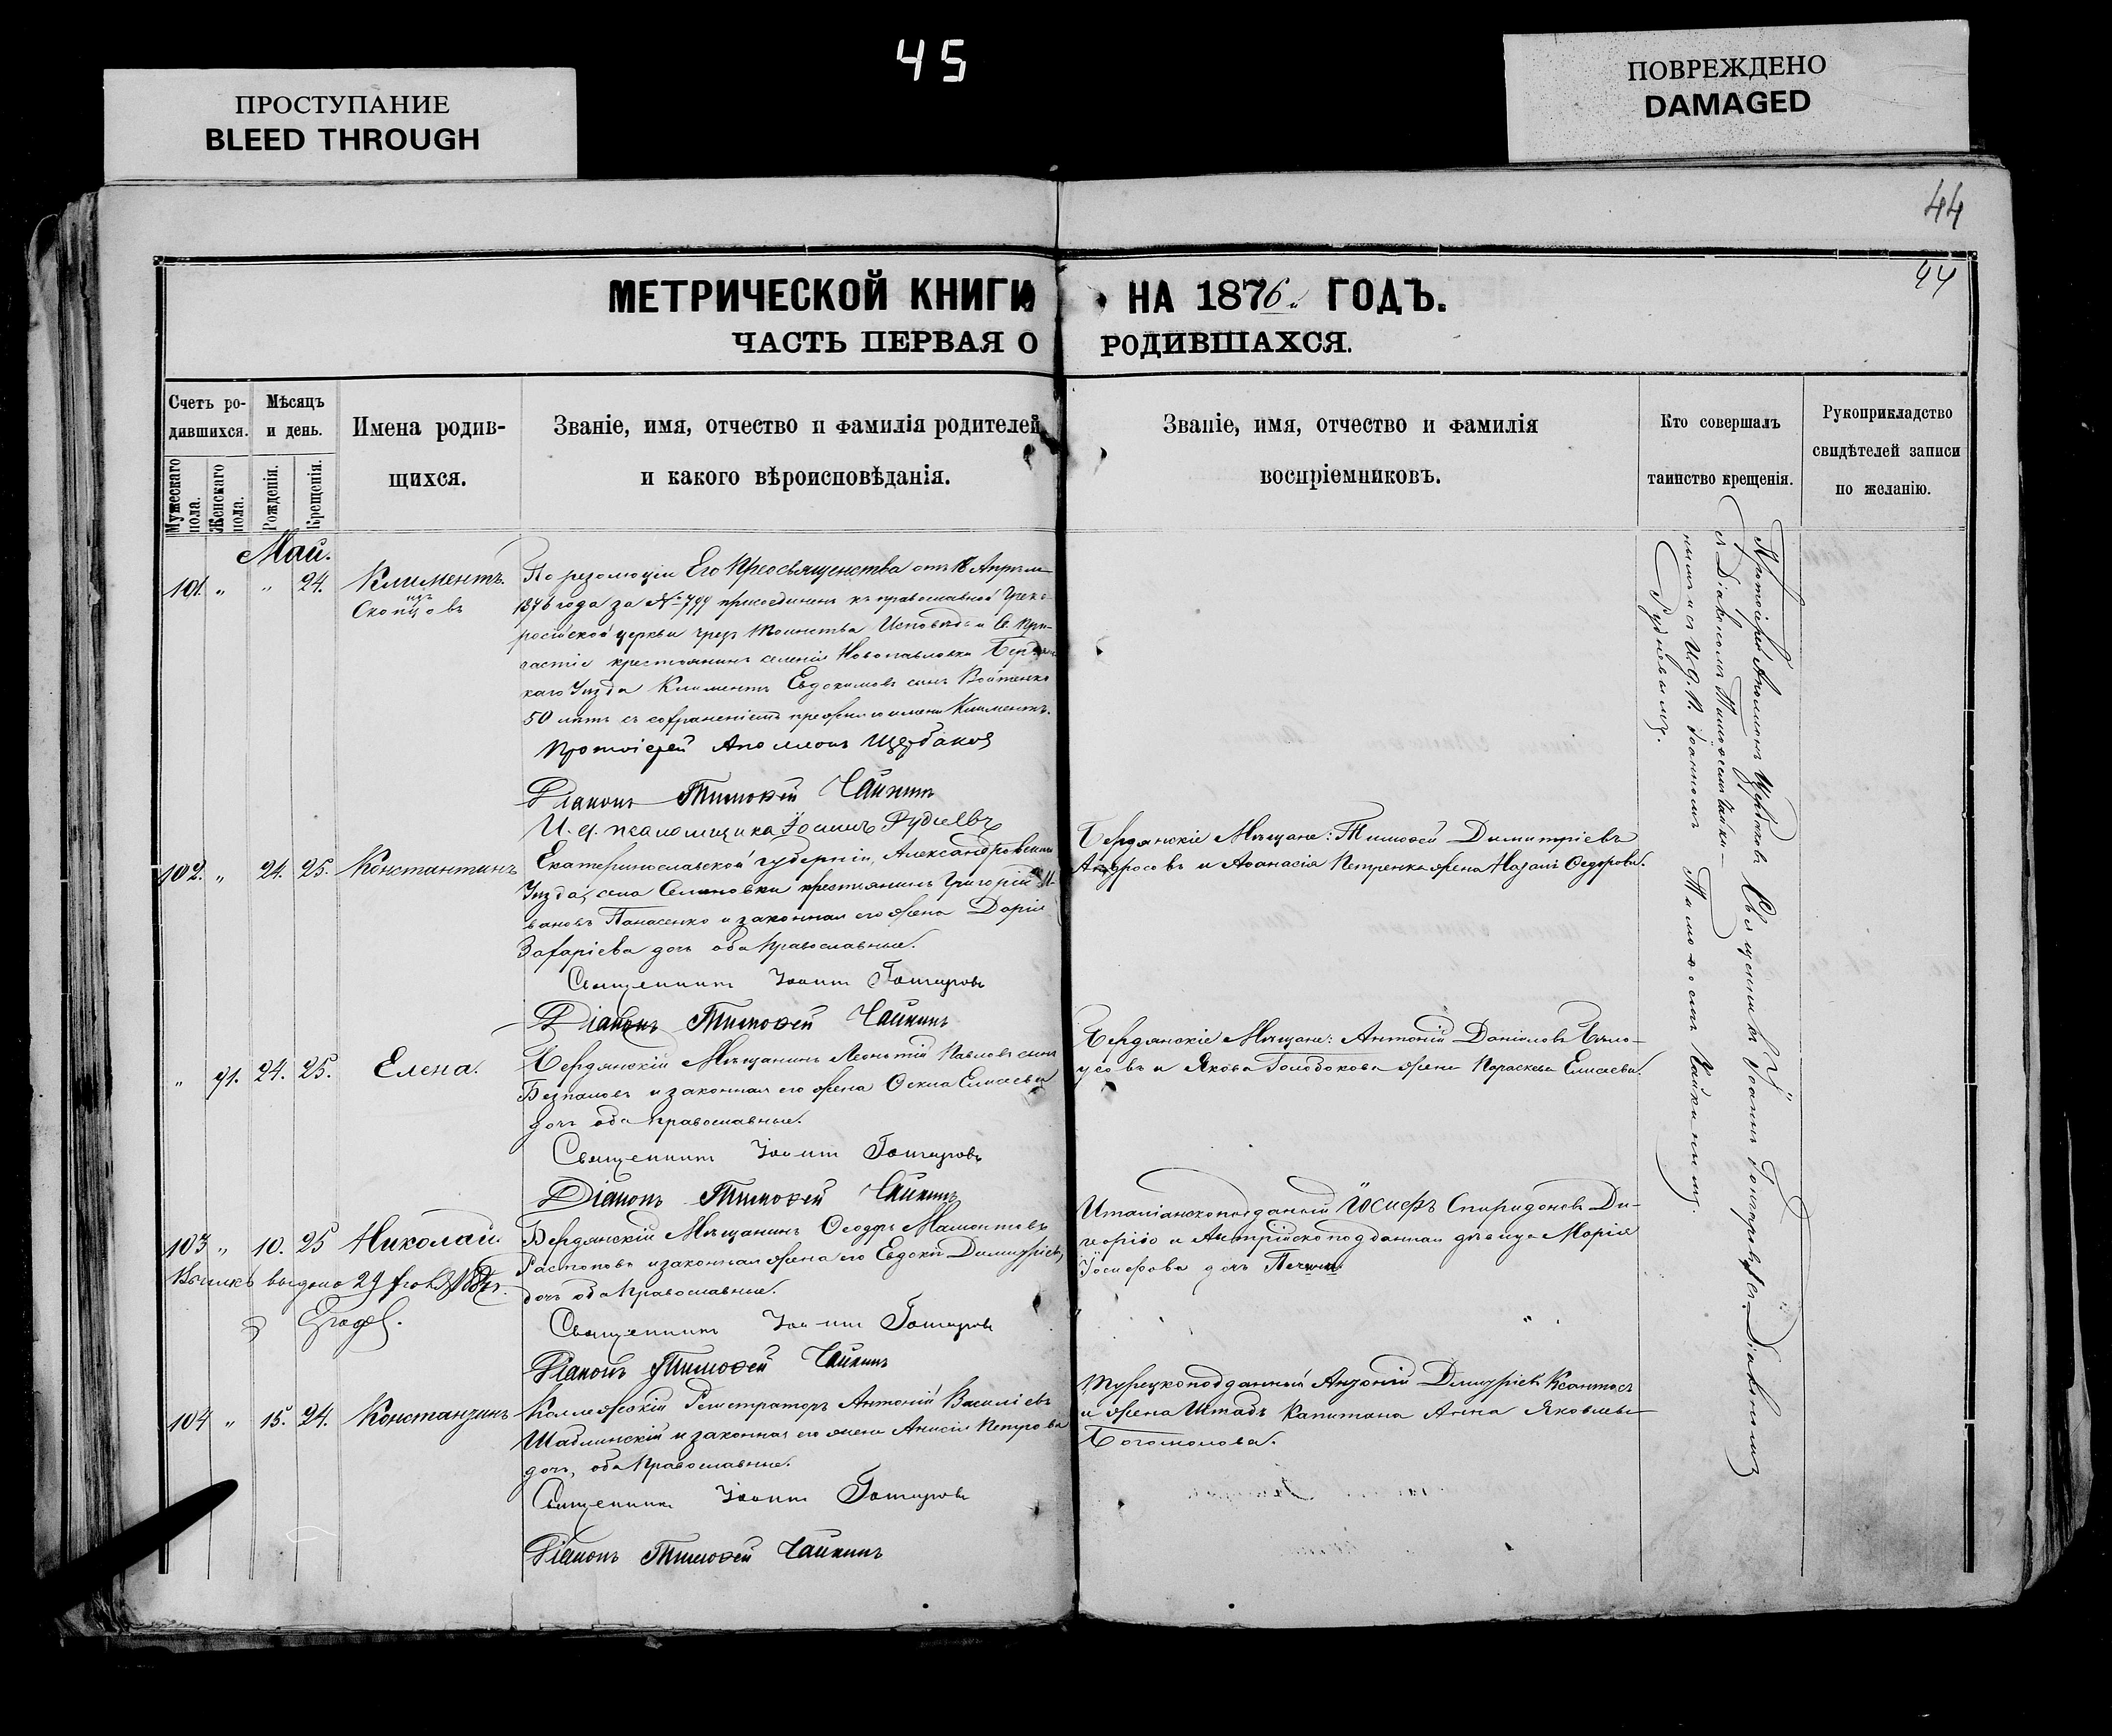 45
ПРОСТУПАНИЕ
BLEED THROUGH
ПОВРЕЖДЕНО
DAMAGED
44
44
МЕТРИЧЕСКОЙ КНИГИ НА 1876 ГОДЪ.
ЧАСТЬ ПЕРВАЯ О РОДИВШАХСЯ.
Счетъ ро-
дившихся.
Мужескаго
пола.
Женскаго
пола.
Мѣсяцъ
и день.
Рожденія.
Крещенія.
Имена родив-
щихся.
Званіе, имя, отчество и фамилія родителей
и какого вѣроисповѣданія.
Званіе, имя, отчество и фамилія
воспріемниковъ.
Кто совершалъ
таинство крещенія.
Рукоприкладство
свидѣтелей записи
по желанію.
Май.
101. " " 24. Климентъ.
изъ
Скопцовъ
По резолюціи Его Преосвященства отъ 18 Апрѣля
1876 года за № 799 присоединенъ къ православной Греко-
россійской церкви чрезъ Таинства Исповѣди и Св. При-
частія крестьянинъ селенія Новопавловки Бердянс-
каго Уѣзда Климентъ Евдокимовъ сынъ Войтенко
50 лѣтъ съ сохраненіемъ прежняго имени Климентъ.
Протоіерей Аполлонъ Щербаковъ
Діаконъ Тимоѳей Чайкинъ
И. д. псаломщика Іоаннъ Рудневъ
102. " 24. 25. Константинъ
Екатеринославской губерніи, Александровскаго
Уѣзда, села Семеновки крестьянинъ Григорій И-
вановъ Панасенко и законная его жена Дарія
Захаріева дочь оба Православные.
Священникъ Іоаннъ Гончаровъ
Діаконъ Тимоѳей Чайкинъ
Бердянскіе Мѣщане: Тимоѳей Димитріевъ
Андросовъ и Аѳанасія Петренка жена Назанъ Ѳедорова.
" 91. 24. 25. Елена.
Бердянскій Мѣщанинъ Леонтій Павловъ сынъ
Безпаловъ и законная его жена Ѳекла Елисеева
дочь оба Православные.
Священникъ Іоаннъ Гончаровъ
Діаконъ Тимоѳей Чайкинъ
Бердянскіе Мѣщане: Антоній Даніиловъ Бѣло-
усовъ и Якова Голобокова жена Параскева Елисеева.
103 " 10. 25 Николай.
выдана 29
Бердянскій Мѣщанинъ Ѳеодоръ Мамонтовъ
Растоповъ и законная жена его Евдокія Димитріева
дочь оба Православные.
Священникъ Іоаннъ Гончаровъ
Діаконъ Тимоѳей Чайкинъ
Италіанскоподданый Іосифъ Спиридоновъ Ди-
и Австрійскоподданная дѣвица Марія
Іосифова дочь
104 " 15. 24. Константинъ
Коллежскій Регистраторъ Антоній Василіевъ
Шаблинскій и законная его жена Анисія Петрова
дочь, оба Православные.
Священникъ Іоаннъ Гончаровъ
Діаконъ Тимоѳей Чайкинъ
Турецкоподданный Антоній Димитріевъ Ксантосъ
и жена Штабъ Капитана Анна Яковлева
Богомолова.
Протоіерей Аполлонъ Щербаковъ
съ Діакономъ Тимоѳеемъ Чайки-
нымъ и съ И. д. П. Іоанномъ
Рудневымъ.
Священникъ Іоаннъ Гончаровъ съ Діакономъ
Тимоѳеемъ Чайкинымъ.